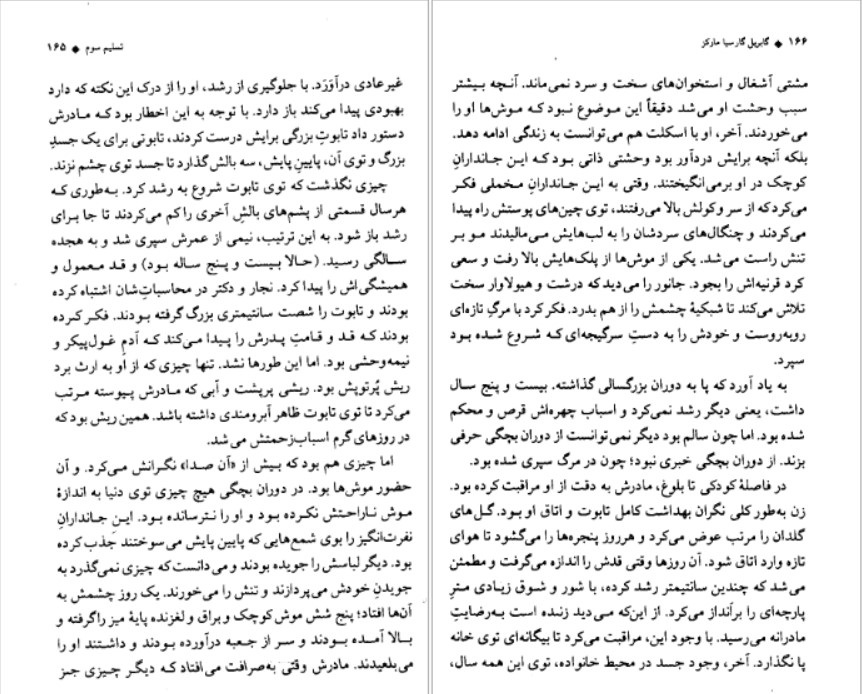 تسلیم سوم ◆ ۱۶۵
غیرعادی درآوَرَد. با جلوگیری از رشد، او را از درک این نکته که دارد
بهبودی پیدا می‌کند باز دارد. با توجه به این اخطار بود که مادرش
دستور داد تابوتِ بزرگی برایش درست کردند، تابوتی برای یک جسدِ
بزرگ و توی آن، پایینِ پایش، سه بالش گذارد تا جسد توی چشم نزند.
چیزی نگذشت که توی تابوت شروع به رشد کرد. به‌طوری که
هرسال قسمتی از پشم‌های بالشِ آخری را کم می‌کردند تا جا برای
رشد باز شود. به این ترتیب، نیمی از عمرش سپری شد و به هجده
سالگی رسید. (حالا بیست و پنج ساله بود) و قد معمول و
همیشگی‌اش را پیدا کرد. نجار و دکتر در محاسباتِ‌شان اشتباه کرده
بودند و تابوت را شصت سانتیمتری بزرگ گرفته بودند. فکر کرده
بودند که قد و قامتِ پدرش را پیدا می‌کند که آدمِ غول‌پیکر و
نیمه‌وحشی بود. اما این طورها نشد. تنها چیزی که از او به ارث برد
ریش پُرتوپش بود. ریشی پرپشت و آبی که مادرش پیوسته مرتب
می‌کرد تا توی تابوت ظاهر آبرومندی داشته باشد. همین ریش بود که
در روزهای گرم اسباب‌زحمتش می‌شد.
اما چیزی هم بود که بیش از «آن صدا» نگرانش می‌کرد. و آن
حضور موش‌ها بود. در دوران بچگی هیچ چیزی توی دنیا به اندازهٔ
موش ناراحتش نکرده بود و او را نترسانده بود. این جاندارانِ
نفرت‌انگیز را بوی شمع‌هایی که پایین پایش می‌سوختند جذب کرده
بود. دیگر لباسش را جویده بودند و می‌دانست که چیزی نمی‌گذرد به
جویدنِ خودش می‌پردازند و تنش را می‌خورند. یک روز چشمش به
آن‌ها افتاد؛ پنج شش موش کوچک و براق و لغزنده پایهٔ میز را گرفته و
بالا آمده بودند و سر از جعبه درآورده بودند و داشتند او را
می‌بلعیدند. مادرش وقتی به‌صرافت می‌افتاد که دیگر چیزی جز
۱۶۶ ◆ گابریل گارسیا مارکز
مشتی آشغال و استخوان‌های سخت و سرد نمی‌ماند. آنچه بیشتر
سبب وحشت او می‌شد دقیقاً این موضوع نبود که موش‌ها او را
می‌خوردند. آخر، او با اسکلت هم می‌توانست به زندگی ادامه دهد.
بلکه آنچه برایش دردآور بود وحشتی ذاتی بود که این جاندارانِ
کوچک در او برمی‌انگیختند. وقتی به این جاندارانِ مخملی فکر
می‌کرد که از سر وکولش بالا می‌رفتند، توی چین‌های پوستش راه پیدا
می‌کردند و چنگال‌های سردشان را به لب‌هایش می‌مالیدند مو بر
تنش راست می‌شد. یکی از موش‌ها از پلک‌هایش بالا رفت و سعی
کرد قرنیه‌اش را بجود. جانور را می‌دید که درشت و هیولاوار سخت
تلاش می‌کند تا شبکیهٔ چشمش را از هم بدرد. فکر کرد با مرگِ تازه‌ای
روبه‌روست و خودش را به دستِ سرگیجه‌ای که شروع شده بود
سپرد.
به یاد آورد که پا به دوران بزرگسالی گذاشته. بیست و پنج سال
داشت، یعنی دیگر رشد نمی‌کرد و اسباب چهره‌اش قرص و محکم
شده بود. اما چون سالم بود دیگر نمی‌توانست از دوران بچگی حرفی
بزند. از دوران بچگی خبری نبود؛ چون در مرگ سپری شده بود.
در فاصلهٔ کودکی تا بلوغ، مادرش به دقت از او مراقبت کرده بود.
زن به‌طور کلی نگران بهداشت کامل تابوت و اتاق او بود. گل‌های
گلدان را مرتب عوض می‌کرد و هرروز پنجره‌ها را می‌گشود تا هوای
تازه وارد اتاق شود. آن روزها وقتی قدش را اندازه می‌گرفت و مطمئن
می‌شد که چندین سانتیمتر رشد کرده، با شور و شوق زیادی مترِ
پارچه‌ای را برانداز می‌کرد. از این‌که می‌دید زنده است به‌رضایتِ
مادرانه می‌رسید. با وجود این، مراقبت می‌کرد تا بیگانه‌ای توی خانه
پا نگذارد. آخر، وجود جسد در محیط خانواده، توی این همه سال،